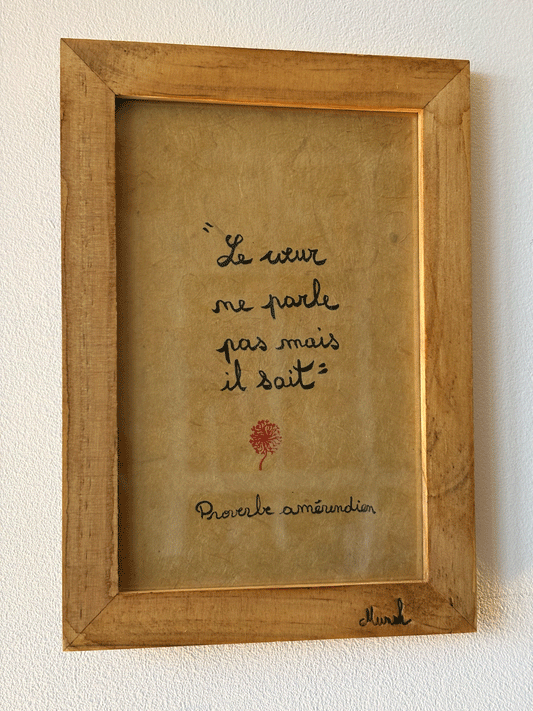 "Le cœur
ne parle
pas mais
il sait"
Proverbe amérendien